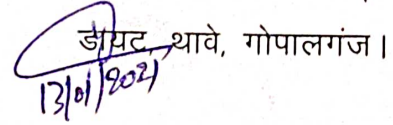 डायट, थावे, गोपालगंज।
13/01/2021